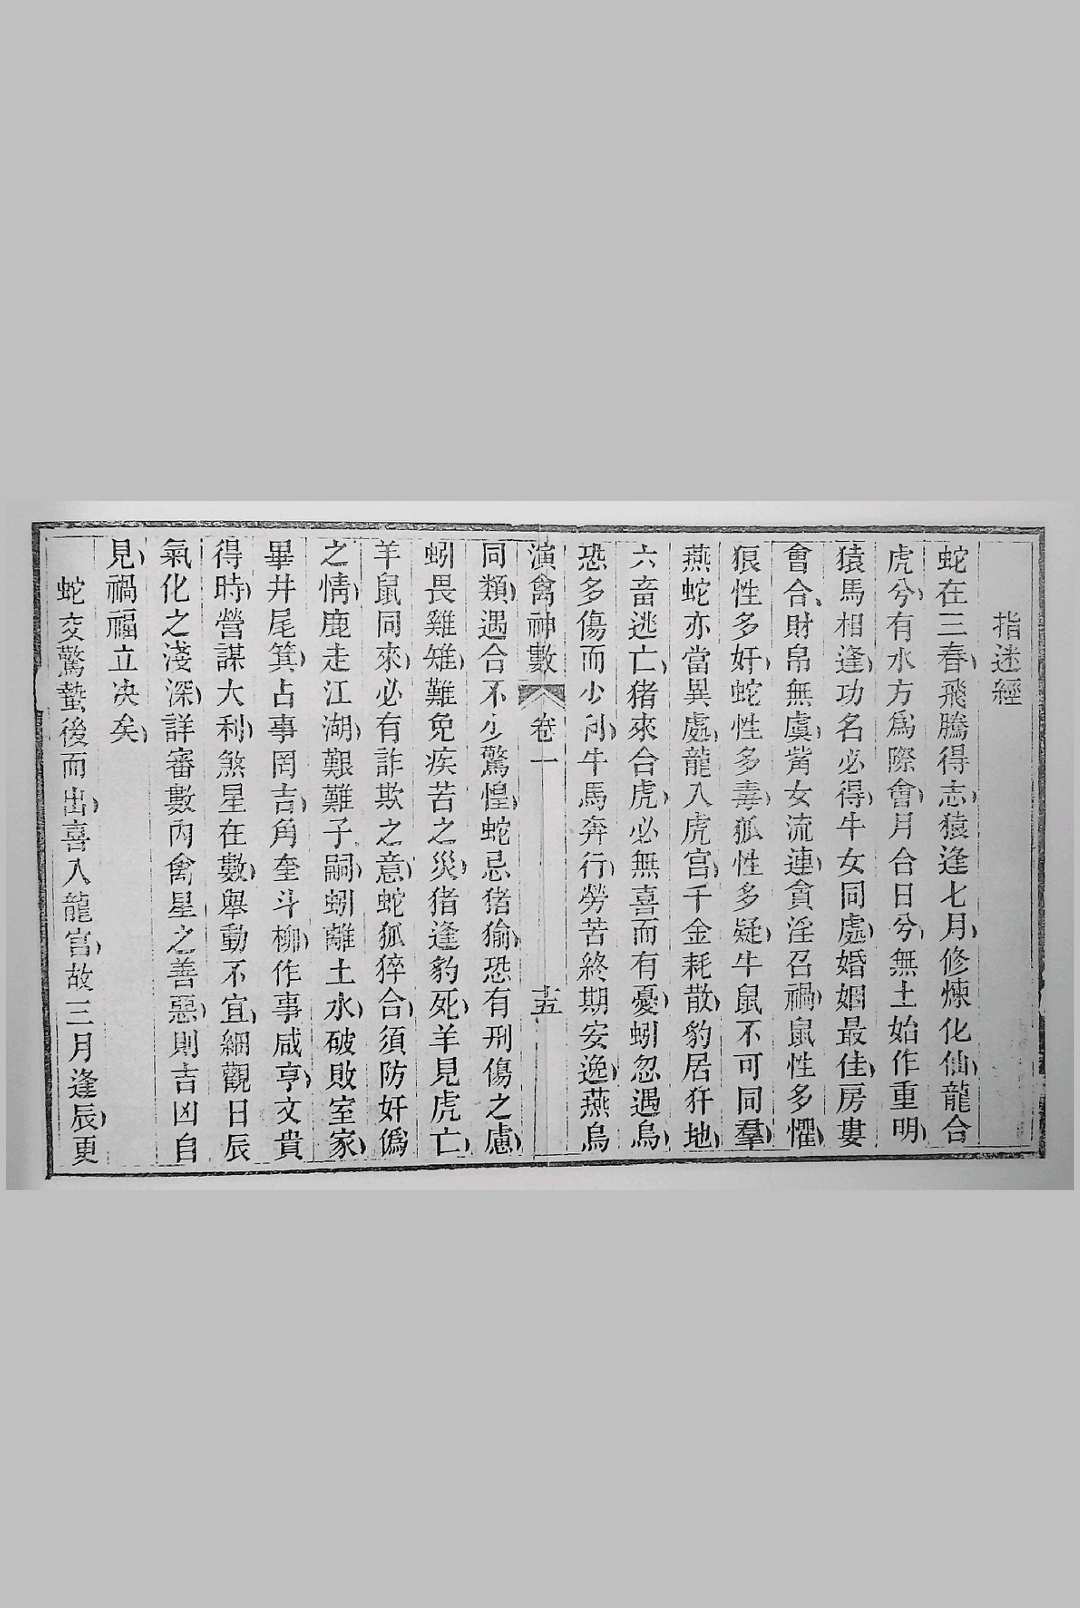 指迷經
蛇在三春飛騰得志猿逢七月修煉化仙龍合
虎兮有水方爲際會月合日兮無土始作重明
猿馬相逢功名必得牛女同處婚姻最佳房婁
會合財帛無虞觜女流連貪淫召禍鼠性多懼
狼性多奸蛇性多毒狐性多疑牛鼠不可同羣
燕蛇亦當異處龍入虎宫千金耗散豹居犴地
六畜逃亡猪來合虎必無喜而有憂蚓忽遇烏
恐多傷而少利牛馬奔行勞苦終期安逸燕烏
演禽神數 卷一 十五
同類遇合不少驚惶蛇忌猪㺄恐有刑傷之慮
蚓畏雞雉難免疾苦之災猪逢豹死羊見虎亡
羊鼠同來必有詐欺之意蛇狐猝合須防奸僞
之情鹿走江湖艱難子嗣蚓離土水破敗室家
畢井尾箕占事罔吉角奎斗柳作事咸亨文貴
得時營謀大利煞星在數舉動不宜細觀日辰
氣化之淺深詳審數内禽星之善惡則吉凶自
見禍福立决矣
蛇交驚蟄後而出喜入龍宫故三月逢辰更